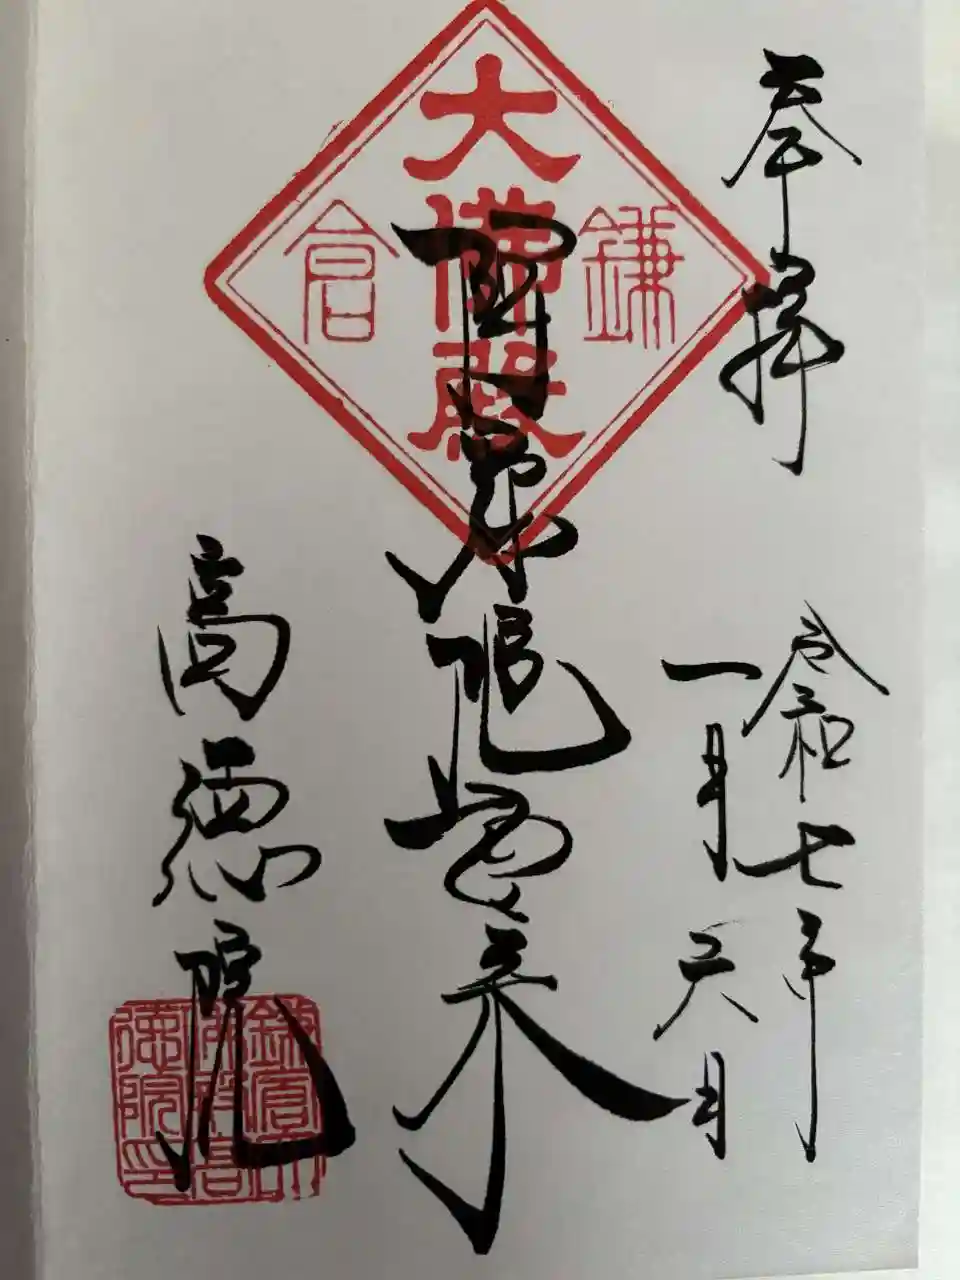 奉拝
令和七年
一月六日
鎌倉
大佛殿
阿弥陀如来
高徳院
鎌倉大佛殿高徳院印